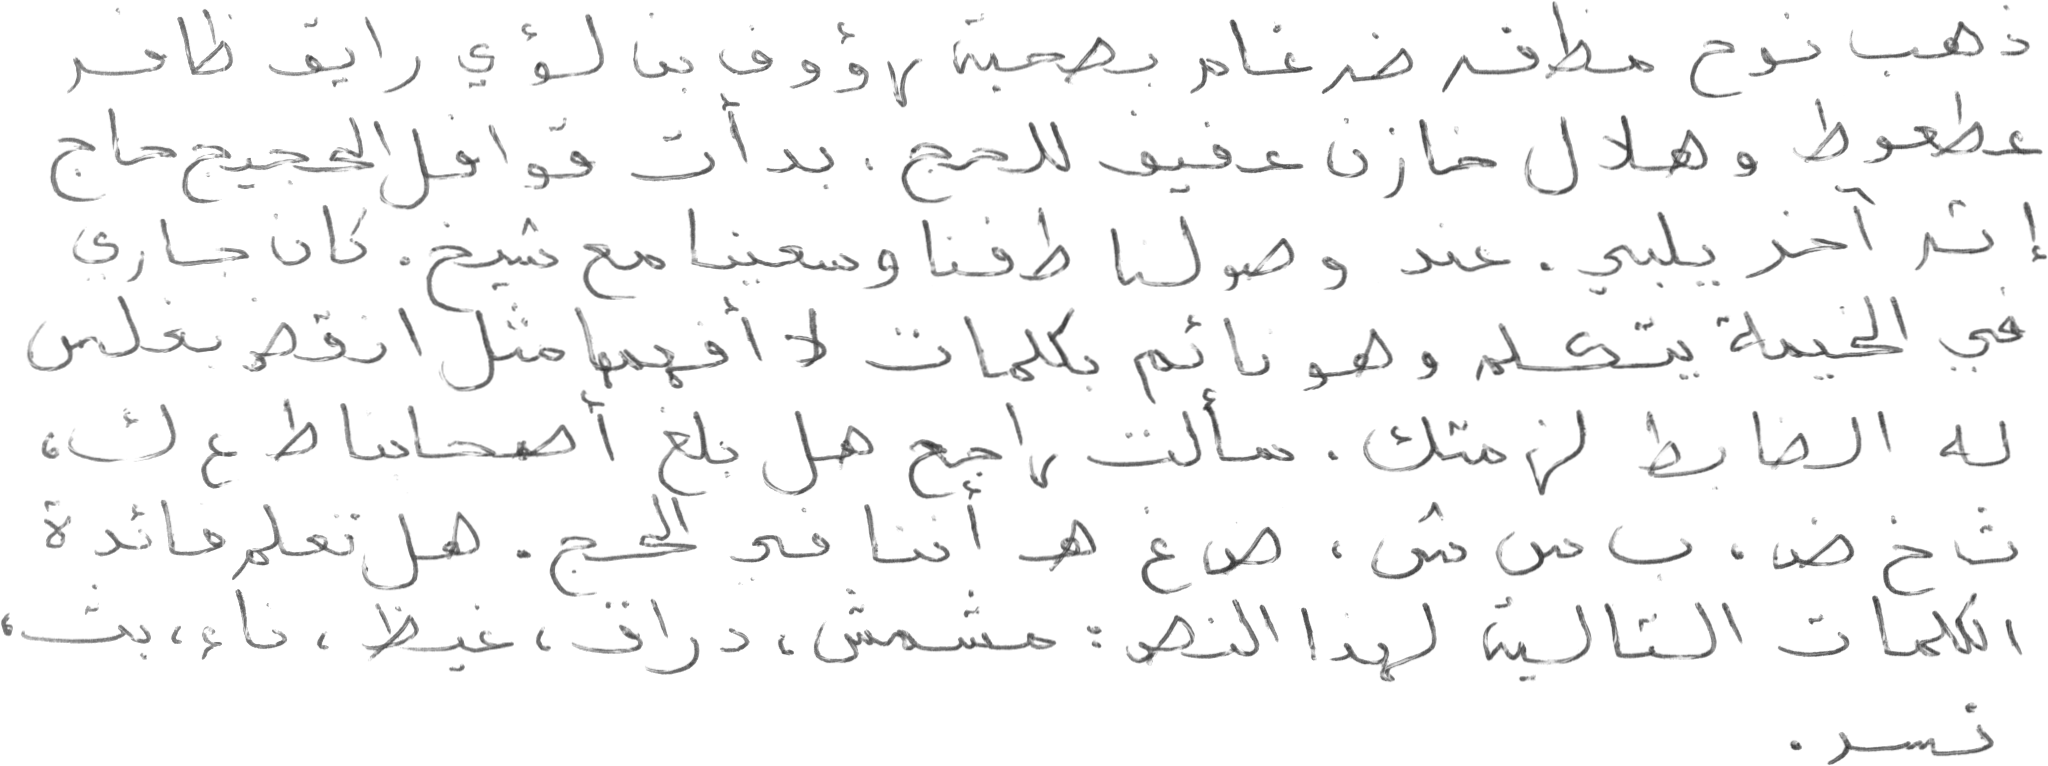 ذهب نوح مظفر ضرغام بصحبة رؤوف بن لؤي رايق ظافر
عطعوط وهلال خازن عفيف للحج . بدأت قوافل الحجيج حاج
إثر آخر يلبي . عند وصولنا طفنا وسعينا مع شيخ . كان جاري
في الخيمة يتكلم وهو نائم بكلمات لا أفهمها مثل انقض بغلس
له الضابط لزمتك . سألت راجح هل بلغ أصحابنا ط ع ك ،
ث خ ض ، ب س ش ، ص غ هـ أننا في الحج . هل تعلم فائدة
الكلمات التالية لهذا النص : مشمش ، دراق ، غيظ ، ناء ، بث ،
نسر .